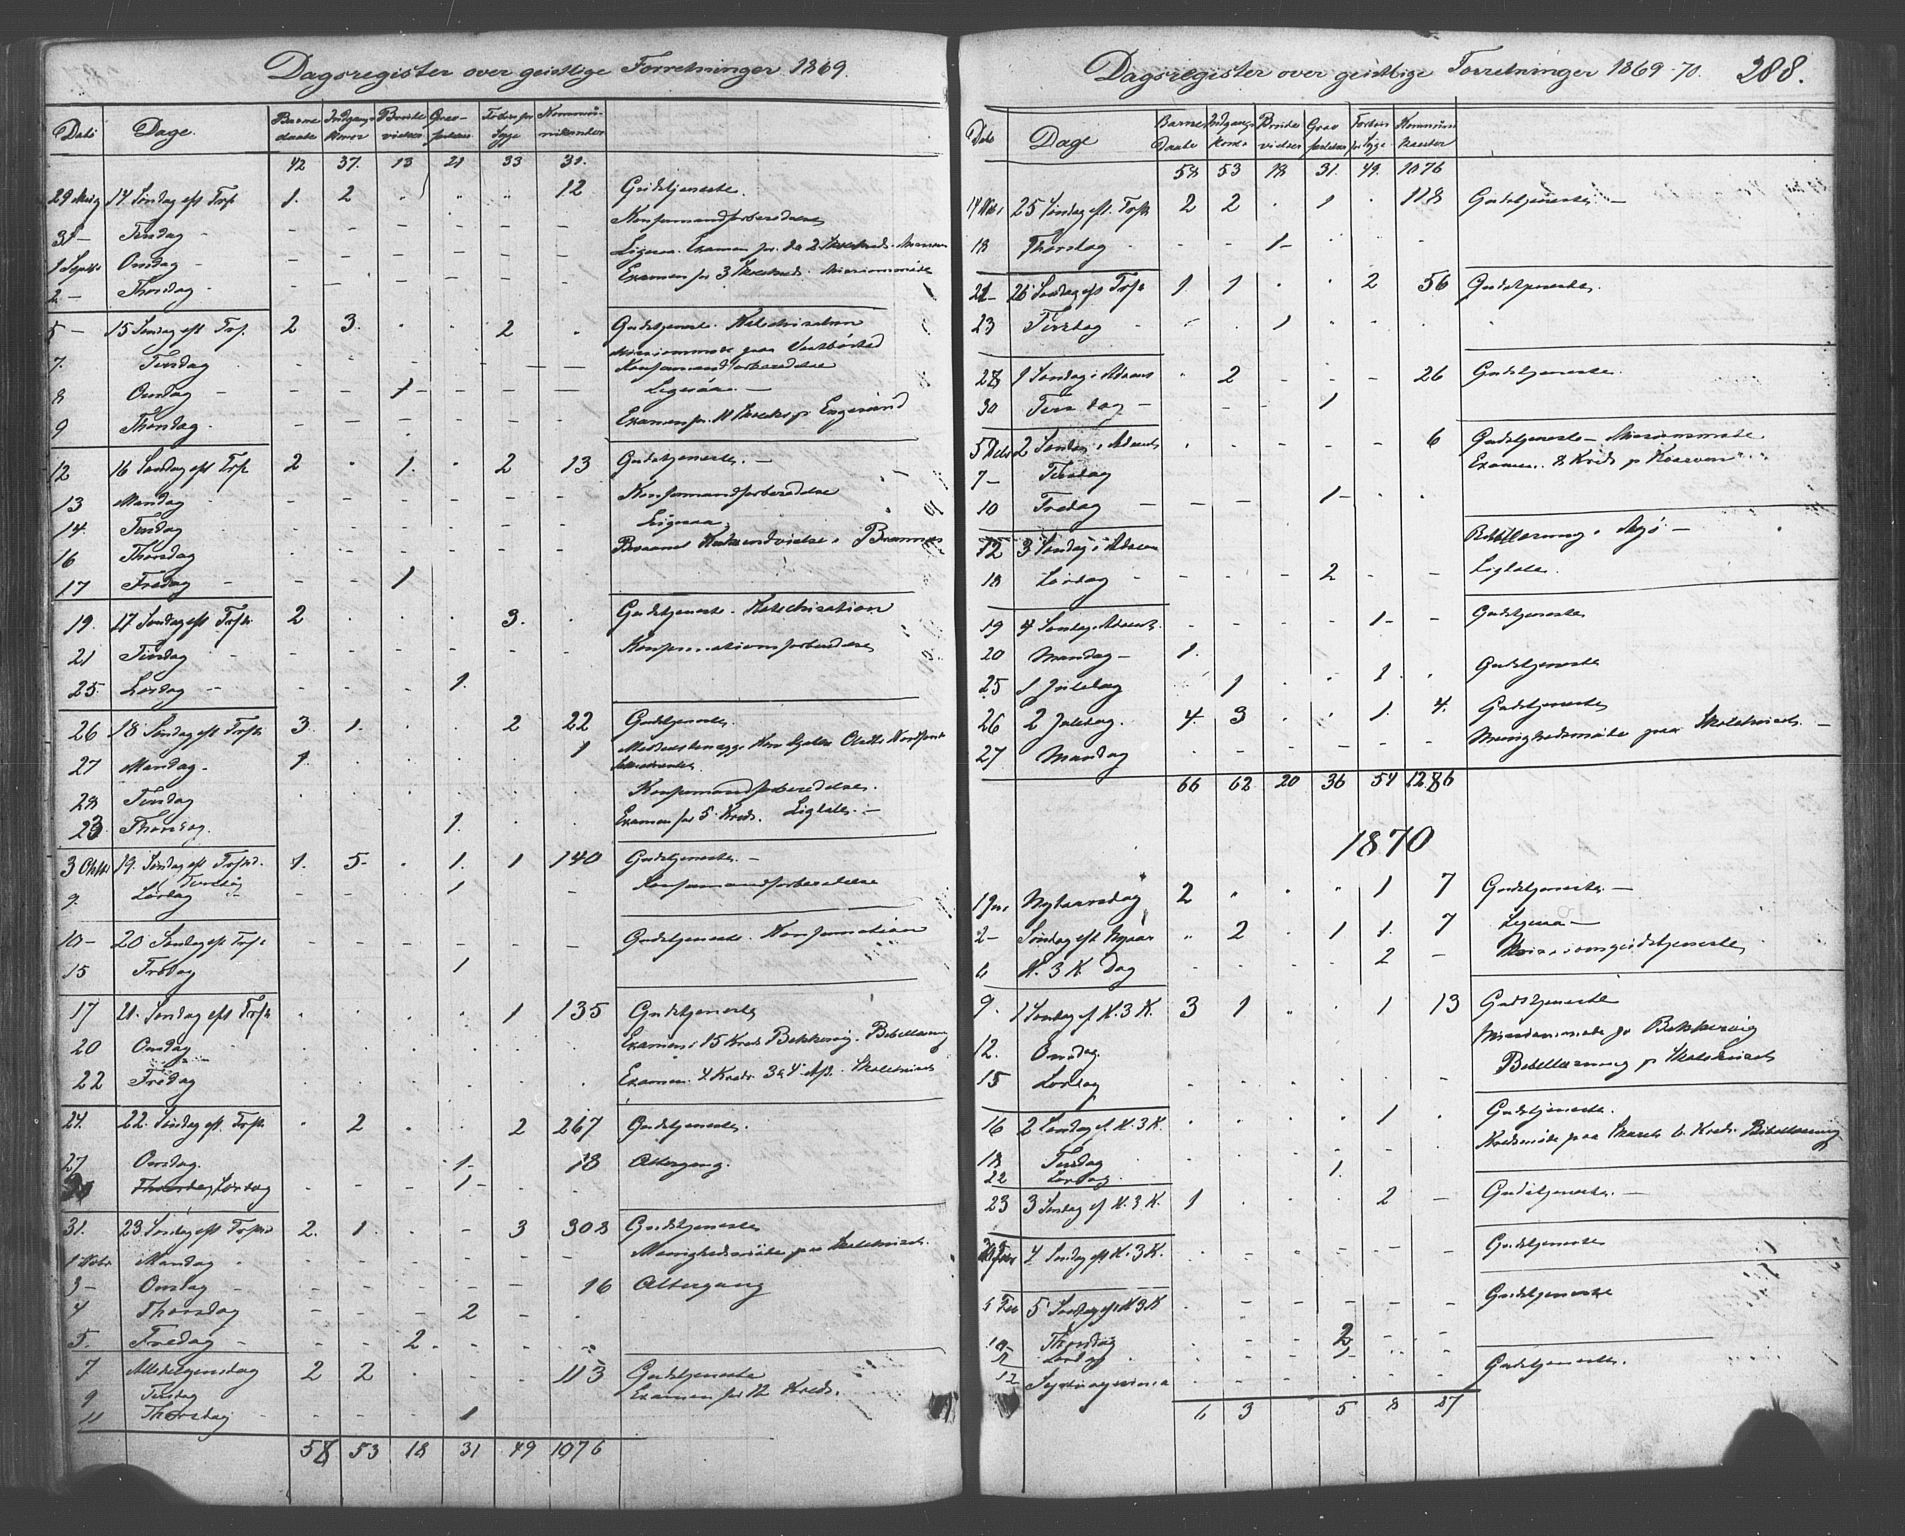 Dagsregister over geistlige Forretninger 1869.
Dato Dage. Barne daabe Indgangs Koner Brude vielser Grav- fæstelser Forbøn for Syge Kommu- nikanter
42 37. 13 21 33 31.
29 Aug 14 Søndag eft Tref 1. 2 12 Gudstjeneste.
31 — Tirsdag Konfirmandforberedelse
1 Septbr Onsdag Ligesaa. Examen for de 2 Skolekreds.
2 — Thorsdag Examen for 3 Skolekreds. Missionsmøde
5 — 15 Søndag eft Tref. 2 3. 2 Gudstjeneste. Katechisation
Missionsmøde paa
7. Tirsdag Konfirmandforberedelse
8 Onsdag 1 Ligesaa —
9 Thorsdag Examen for 11 Skolekr. p. Engesund
12 16 Søndag eft Tref 2 1. 2 13 Gudstjeneste. —
13 Mandag Konfirmandforberedelse
14. Tirsdag Ligesaa
16 Thorsdag
17 Fredag 1
19. 17 Søndag eft Trefr. 2 3. Gudstjeneste. Katechisation
21 Tirsdag Konfirmationsforberedelse
25. Lørdag 1.
26 18 Søndag eft Trefr 3. 1. 2 22 Gudstjeneste.
27 Mandag. 1. 1
28 Tirsdag Konfirmandforberedelse.
23 Thorsdag. 1. Examen for 5 Kreds. Liglale. —
3 Oktbr 19. Søndag eft Trefrd. 1. 5. 1. 1 140 Gudstjeneste. —
Tirsdag Konfirmandforberedelse
9. Lørdag 1
10 — 20 Søndag eft Tref. Gudstjeneste. Konfirmation
15 Fredag 1
17 21. Søndag eft Trefr 1 135 Gudstjeneste
20 Onsdag Examen i 15 Kreds Bekkervig. Bibellæsning
22 Fredag Examen 4 Kreds 3 & 4 Afd. Skolehuset
24. 22. Søndag eft. Trefr 2 2 267 Gudstjeneste.
27 Onsdag. 1. 18 Altergang.
Thorsdag, Lørdag 1
31. 23. Søndag eft Trefr 2. 1. 3 308 Gudstjeneste
1 Novbr Mandag Menighedsmøde paa Skolehuset.
3 — Onsdag 16 Altergang
4 Thorsdag 2
5. Fredag 2
7 Allehelgensdag 2 2 113 Gudstjeneste
9 Tirsdag Examen for 12 Kreds.
11 Thorsdag 1
58 53 18 31 49 1076
Dagsregister over geistlige Forretninger 1869-70. 288.
Dato Dage Barne Daabe Indgangs Kone Brude vielser Grav fæstelser Forbøn for Syge Kommuni kanter
58 53 18 31. 49. 1076
14 Nov 25 Søndag eft. Trefr 2 2 1 118 Gudstjeneste. —
18 Thorsdag 1
21 — 26 Søndag eft Trefr 1 1 2 56 Gudstjeneste.
23 Tirsdag 1
28 1 Søndag i Advent 2 26 Gudstjeneste.
30 Tirsdag — 1
5 Debr 2 Søndag i Advent 6 Gudstjeneste — Missionsmøde
7 — Tirsdag Examen. 8 Kreds p
10 Fredag 1
12 3 Søndag i Advent Bibellæsning i —
18 Lørdag 2 Liglale.
19 4 Søndag i Advent. 1 Gudstjeneste
20 Mandag — 1.
25 1 Juledag 1 1. Gudstjeneste
26 2 Juledag. 4. 3 1. 4. Gudstjeneste
27 Mandag Menighedsmøde paa Skolehuset. —
66 62 20 36 54 1286
1870
1 Jan Nytaarsdag 2 1 7 Gudstjeneste. —
2 — Søndag eft Nytaar 2 1 1. 7 Ligesaa —
6 H. 3 K. Dag 2 Missionsgudstjeneste
9. 1 Søndag ef H. 3 K. 3 1 1 13 Gudstjeneste
12. Onsdag. Missionsmøde p Bekkervig
15 Lørdag Bibellæsning p Skolehuset
16 2 Søndag ef H. 3 K. 1 Gudstjeneste.
18 Tirsdag Kredsmøde paa 6 Kreds. Bibellæsning
22 Lørdag. 1.
23 3 Søndag ef H. 3 K. 1 2 Gudstjeneste. —
4 Søndag eft H. 3 K. Gudstjeneste
5 Søndag eft H 3 K Gudstjeneste
10 Thorsdag 2
Lørdag 1
Gudstjeneste.
6 3 5 8 27